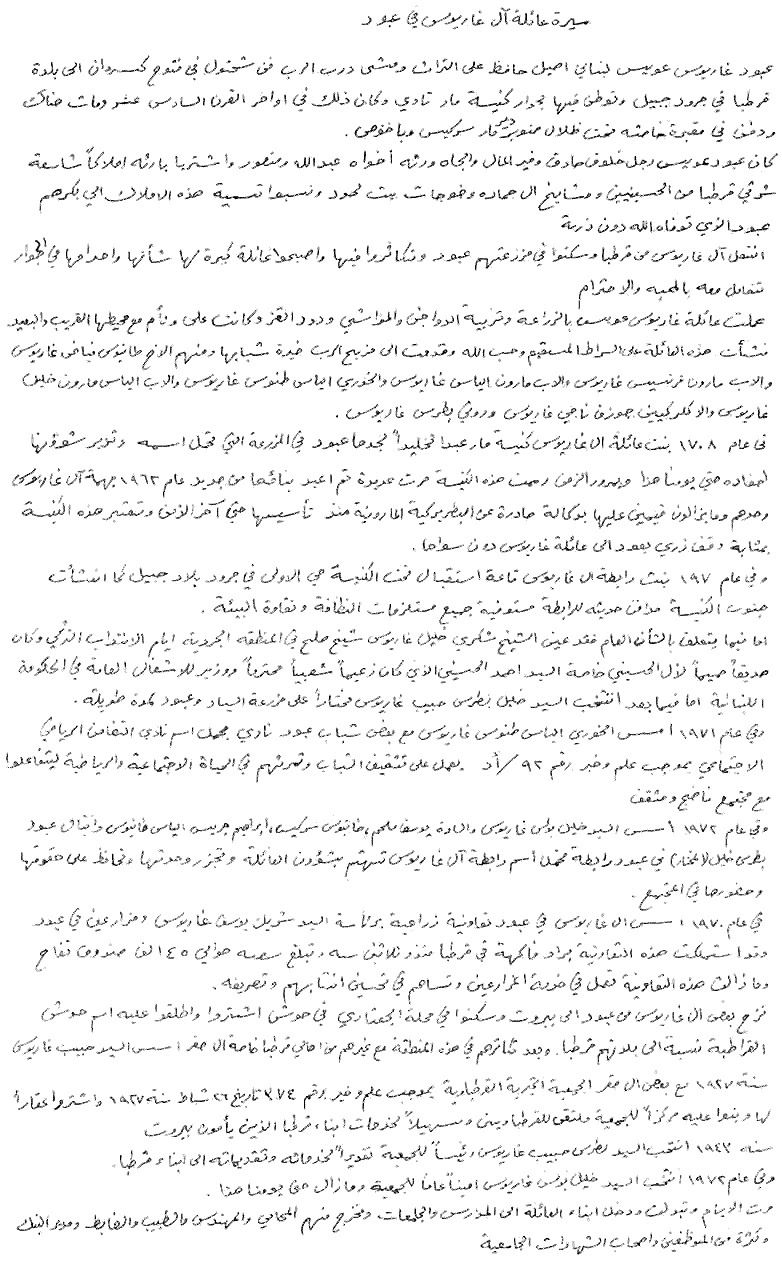 سيرة عائلة آل غاريوس في عبود
عبود غاريوس عويس لبناني اصيل حافظ على التراث ومشى درب الرب من شحتول في فتوح كسروان الى بلدة
قرطبا في جرود جبيل وتوطن فيها بجوار كنيسة مار تادي وكان ذلك في اواخر القرن السادس عشر ومات هناك
ودفن في مقبرة خاصته تحت ظلال صنوبر دير مار سركيس وباخوس .
كان عبود عويس رجل خلوق صادق وفير المال والجاه ورثه أخواه عبدالله ومنصور واشتريا بارثه املاكاً شاسعة
شرقي قرطبا من الحسينيين ومشايخ ال حماده وخوجات بيت لحود ونسبوا تسمية هذه الاملاك الى بكرهم
عبود الذي توفاه الله دون ذرية
انتقل آل غاريوس من قرطبا وسكنوا في مزرعتهم عبود وتكاثروا فيها واصبحوا عائلة كبيرة لها شأنها واحترامها في الجوار
تتعامل معه بالمحبه والاحترام
عملت عائلة غاريوس عويس بالزراعة وتربية الدواجن والمواشي ودود القز وكانت على وئام مع محيطها القريب والبعيد
نشأت هذه العائلة على السراط المستقيم وحب الله وقدمت الى مذبح الرب خيرة شبابها ومنهم الاخ طانيوس فياض غاريوس
والاب مارون فرنسيس غاريوس والاب مارون الياس غاريوس والخوري الياس طنوس غاريوس والاب الياس مارون خليل
غاريوس والاكلركيين جوزف ناجي غاريوس وروني بطرس غاريوس .
في عام ١٧٠٨ بنت عائلة ال غاريوس كنيسة مار عبدا تخليداً لجدها عبود في المزرعة التي تحمل اسمه وتدير شؤونها
احفاده حتى يومنا هذا وبمرور الزمن رممت هذه الكنيسة مرت عديدة ثم اعيد بنائها من جديد عام ١٩٦٢ بهمة آل غاريوس
وحدهم وما يزالون قيمين عليها بوكالة صادرة عن البطريركية المارونية منذ تأسيسها حتى آخر الزمن وتعتبر هذه الكنيسة
بمثابة وقف ذري يعود الى عائلة غاريوس دون سواها .
وفي عام ١٩٧ بنت رابطة ال غاريوس قاعة استقبال تحت الكنيسة هي الاولى في جرود بلاد جبيل كما انشأت
جنوب الكنيسة مدافن حديثه للرابطة مستوفية جميع مستلزمات النظافة ونقاوة البيئة .
اما فيما يتعلق بالشأن العام فقد عين الشيخ شكري خليل غاريوس شيخ صلح في المنطقه الجردية ايام الانتداب التركي وكان
صديقاً حميماً لآل الحسيني خاصة السيد احمد الحسيني الذي كان زعيماً شعبياً محترماً ووزير للاشغال العامة في الحكومة
اللبنانية اما فيما بعد انتخب السيد خليل بطرس حبيب غاريوس مختاراً على مزرعة السياد وعبود لمدة طويله .
وفي عام ١٩٧١ أسس الخوري الياس طنوس غاريوس مع بعض شباب عبود نادي يحمل اسم نادي التضامن الرياضي
الاجتماعي بموجب علم وخبر رقم ٩٢/أد يعمل على تثقيف الشباب وتمرسهم في الحياة الاجتماعية والرياضية ليتفاعلوا
مع مجتمع ناضج ومثقف
وفي عام ١٩٧٢ أسس السيد خليل بولس غاريوس والسادة يوسف ملحم، طانيوس سركيس، ابراهيم جريس الياس طانيوس واقبال عبود
بطرس خليل (المختار) في عبود رابطة تحمل أسم رابطة آل غاريوس تهتم بشؤون العائلة وتعزز وحدتها وتحافظ على حقوقها
وحضورها في المجتمع .
في عام ١٩٧٠ اسس ال غاريوس في عبود تعاونية زراعية برئاسة السيد شربل يوسف غاريوس ومزارعين في عبود
وقد استملكت هذه التعاونية براد فاكهة في قرطبا منذ ثلاثين سنه وتبلغ سعته حوالي ٤٥ الف صندوق تفاح
وما زالت هذه التعاونية تعمل في خدمة المزارعين وتساهم في تحسين انتاجهم وتصريفه .
نزح بعض ال غاريوس من عبود الى بيروت وسكنوا في محلة الجعتاوي في حوش اشتروا واطلقوا عليه اسم حوش
القراطبة نسبة الى بلدتهم قرطبا. وبعد تكاثرهم في هذه المنطقة مع غيرهم من اهالي قرطبا خاصة ال صقر اسس السيد حبيب غاريوس
سنة ١٩٢٧ مع بعض ال صقر الجمعية الخيرية القرطباوية بموجب علم وخبر رقم ٣٧٤ تاريخ ٢٦ شباط سنة ١٩٢٧ واشتروا عقاراً
لها وبنوا عليه مركزاً للجمعية وملتقى للقرطباويين وتسهيلاً لخدمات ابناء قرطبا الذين يأمون بيروت
سنه ١٩٤٣ انتخب السيد بطرس حبيب غاريوس رئيساً للجمعية تقديراً لخدماته وتقديماته الى ابناء قرطبا .
وفي عام ١٩٧٢ انتخب السيد خليل بولس غاريوس اميناً عاماً للجمعية وما زال حتى يومنا هذا .
مرت الايام وتبدلت ودخل ابناء العائلة الى المدارس والجامعات وتخرج منهم المحامي والمهندس والطبيب والضابط ومدير البنك
وكثرة من الموظفين واصحاب الشهادات الجامعية